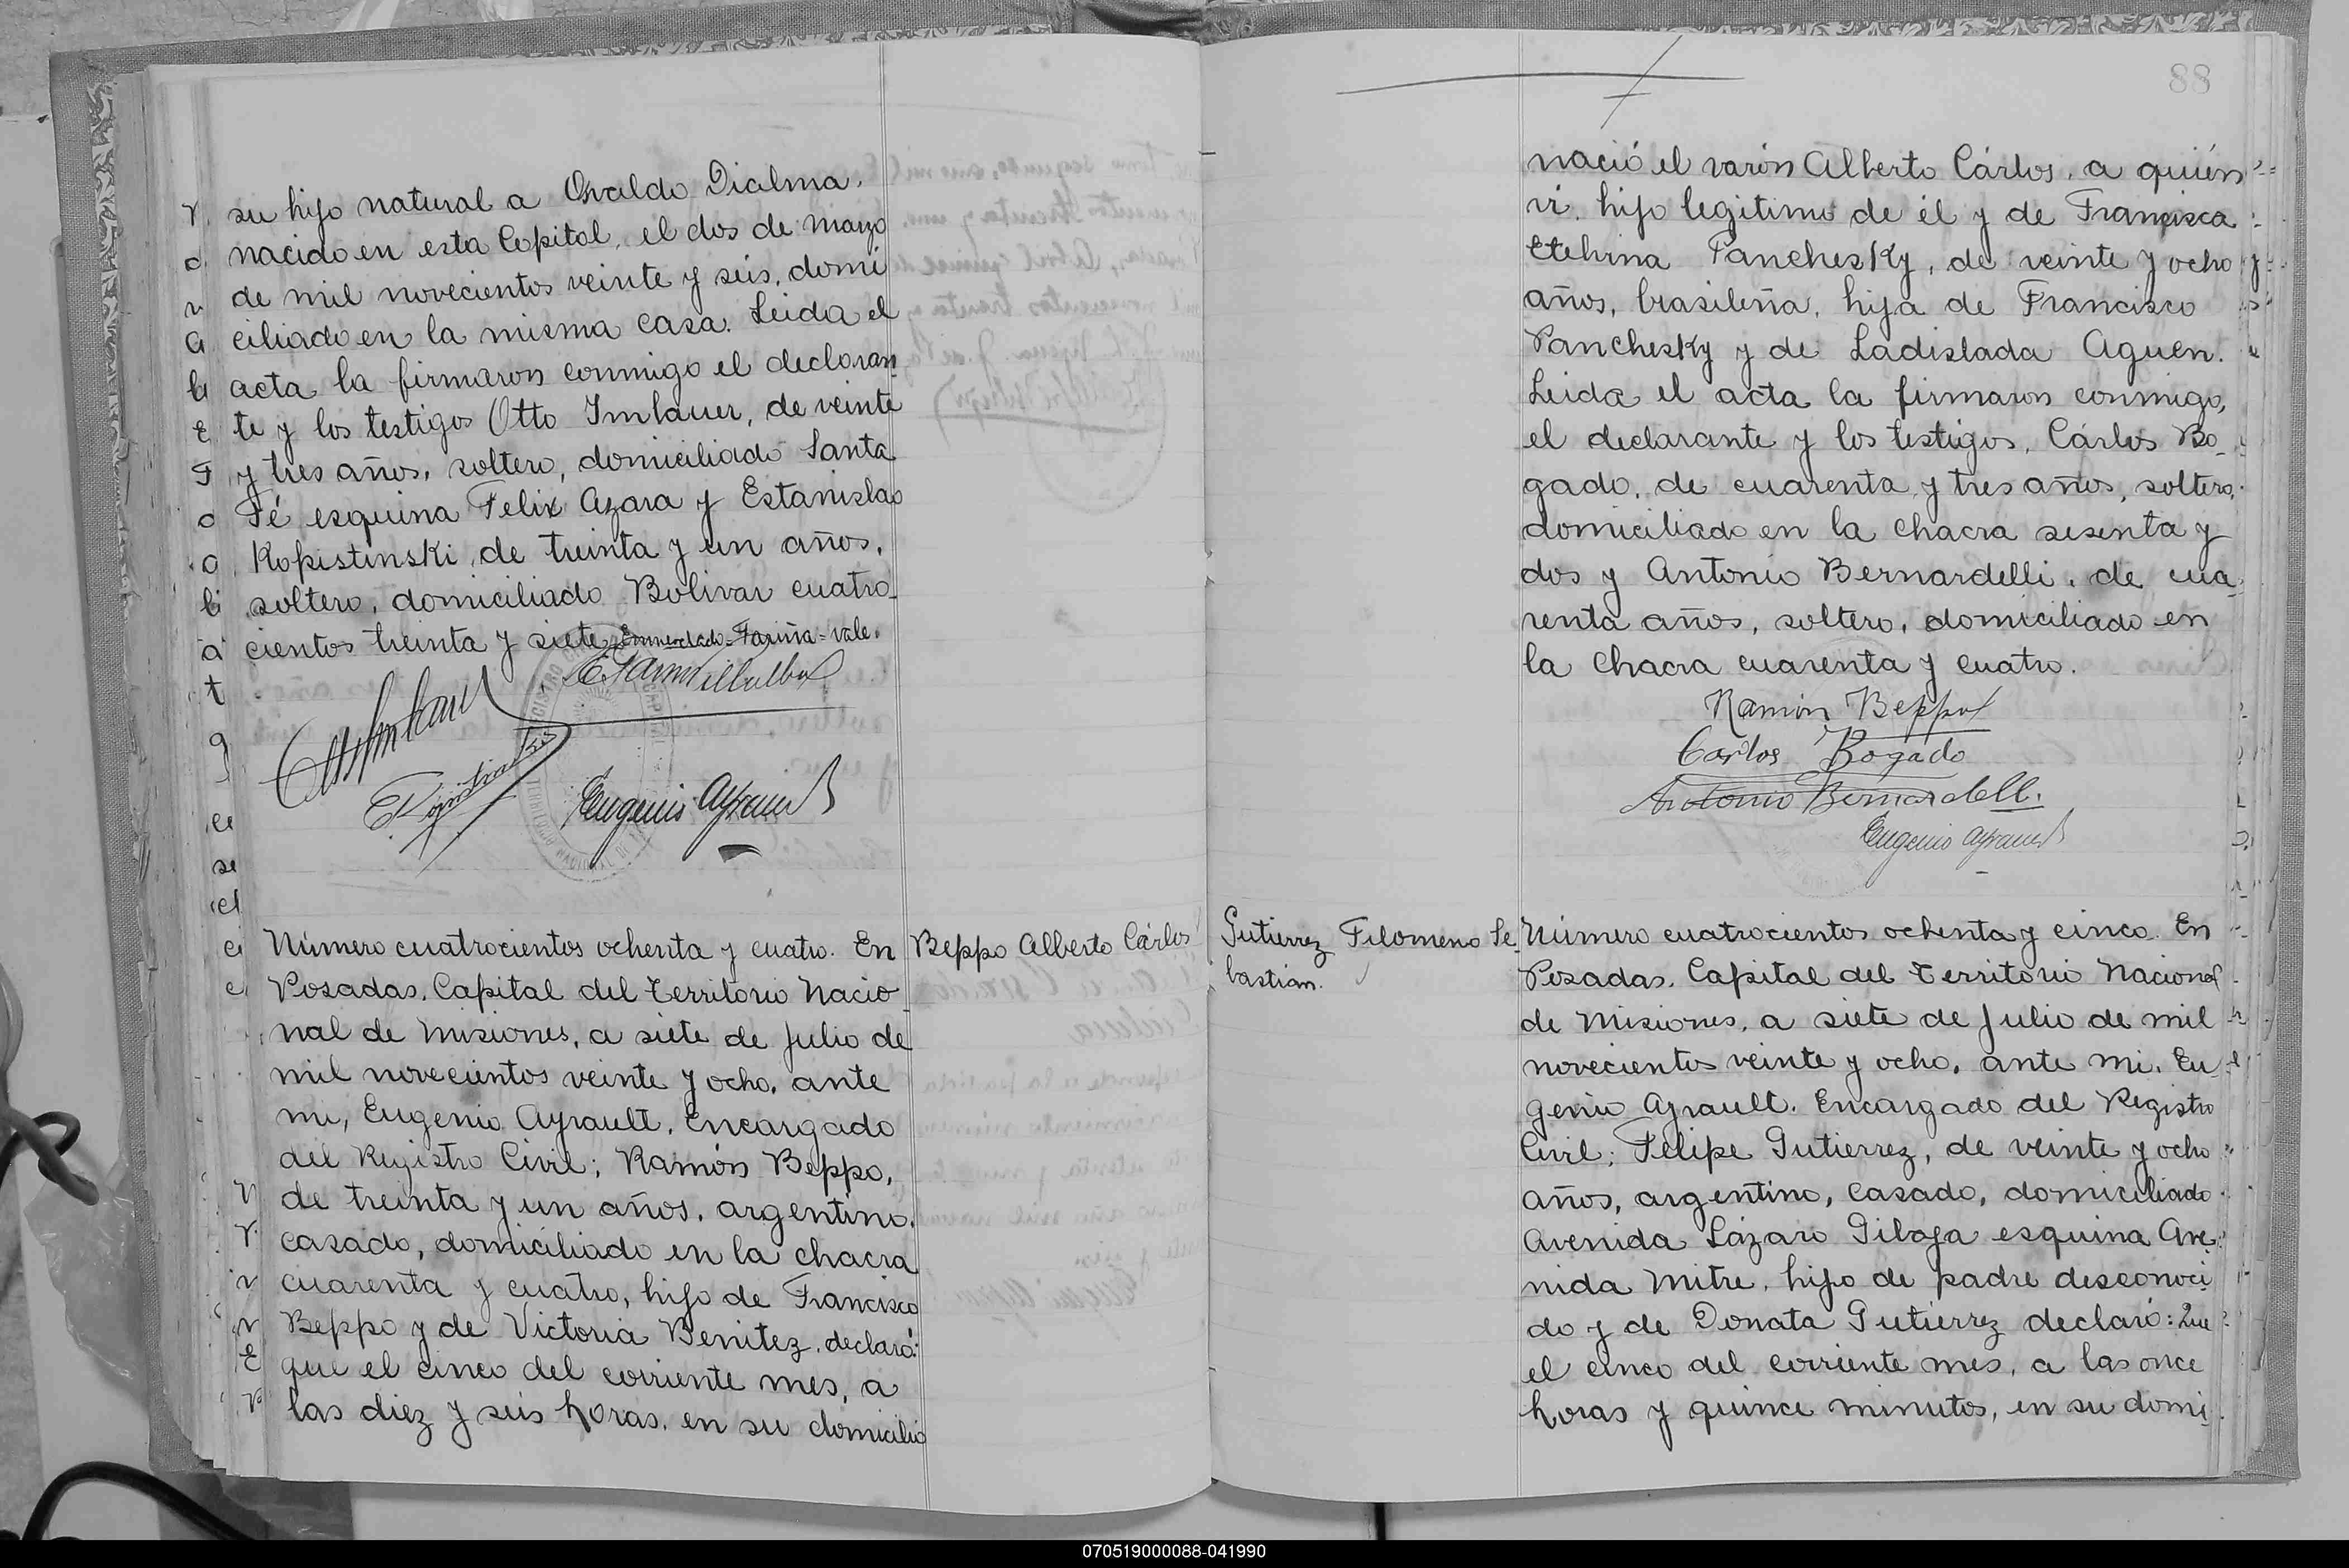 su hijo natural a Osvaldo Dialma,
nacido en esta Capital, el dos de marzo
de mil novecientos veinte y seis, domi
ciliado en la misma casa. Leida el
acta la firmaron conmigo el declaran
te y los testigos Otto Imlauer, de veinte
y tres años, soltero, domiciliado Santa
Fé esquina Felix Azara y Estanislao
Kopistinski, de treinta y un años,
soltero, domiciliado Bolivar cuatro_
cientos treinta y siete. Enmendado=Fariña=vale.
Eugenio Ayrault
Número cuatrocientos ochenta y cuatro. En
Posadas, Capital del Territorio Nacio
nal de Misiones, a siete de Julio de
mil novecientos veinte y ocho, ante
mi, Eugenio Ayrault, Encargado
del Registro Civil; Ramón Beppo,
de treinta y un años, argentino,
casado, domiciliado en la chacra
cuarenta y cuatro, hijo de Francisco
Beppo y de Victoria Benitez, declaró:
que el cinco del corriente mes, a
las diez y seis horas, en su domicilio
Beppo Alberto Cárlos
88
nació el varón Alberto Cárlos, a quién
vi, hijo legitimo de él y de Francisca
Etelvina Panchesky, de veinte y ocho
años, brasileña, hija de Francisco
Panchesky y de Ladislada Aguen.
Leida el acta la firmaron conmigo,
el declarante y los testigos, Cárlos Bo_
gado, de cuarenta y tres años, soltero,
domiciliado en la chacra sesenta y
dos y Antonio Bernardelli, de cua_
renta años, soltero, domiciliado en
la chacra cuarenta y cuatro.
Ramón Beppo
Carlos Bogado
Antonio Bernardelli.
Eugenio Ayrault
Gutierrez Filomeno Se_
bastian.
Número cuatrocientos ochenta y cinco. En
Posadas, Capital del Territorio Nacional
de Misiones, a siete de Julio de mil
novecientos veinte y ocho, ante mi, Eu_
genio Ayrault, Encargado del Registro
Civil; Felipe Gutierrez, de veinte y ocho
años, argentino, casado, domiciliado
Avenida Lázaro Giboja esquina Ave_
nida Mitre, hijo de padre desconoci_
do y de Donata Gutierrez declaró: Que
el cinco del corriente mes, a las once
horas y quince minutos, en su domi_
070519000088-041990